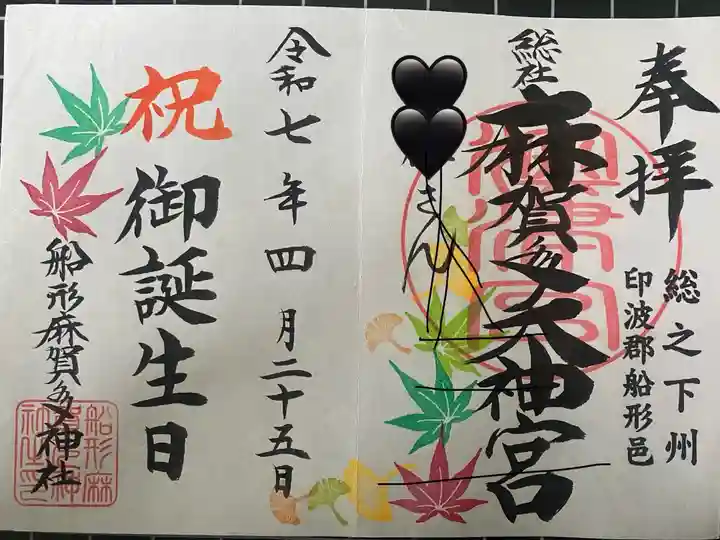 奉拝
総之下州
印波郡船形邑
総社
麻賀多大神宮
きん
令和七年四月二十五日
祝
御誕生日
船形麻賀多神社